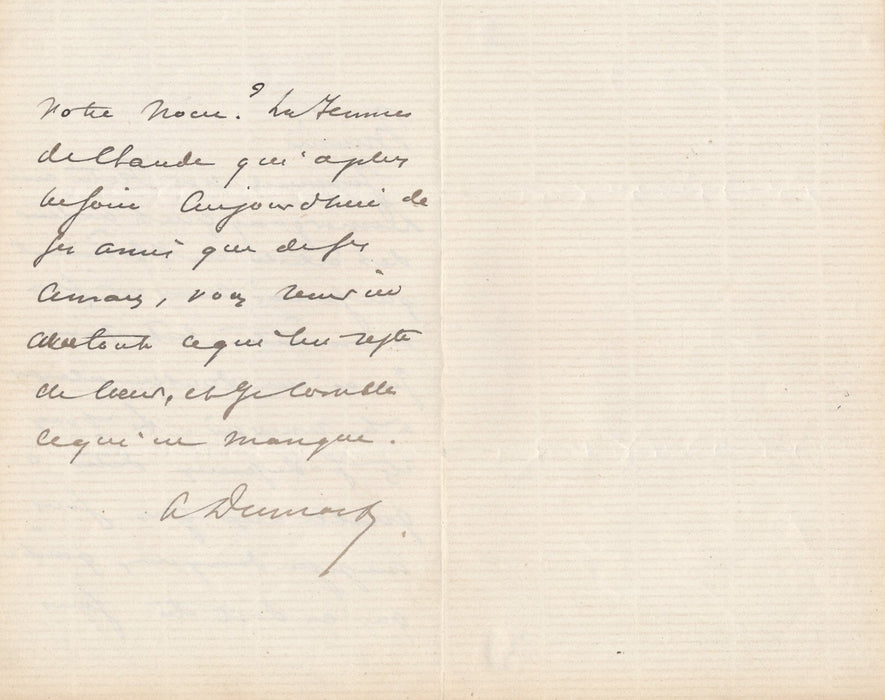 votre nom? La Femme
de Claude qui a plus
besoin aujourd'hui de
ses amis que de ses
amans, vous remercie
de tout ce qui lui reste
de Coeur, et Je comble
ce qui en manque.
A Dumas f.